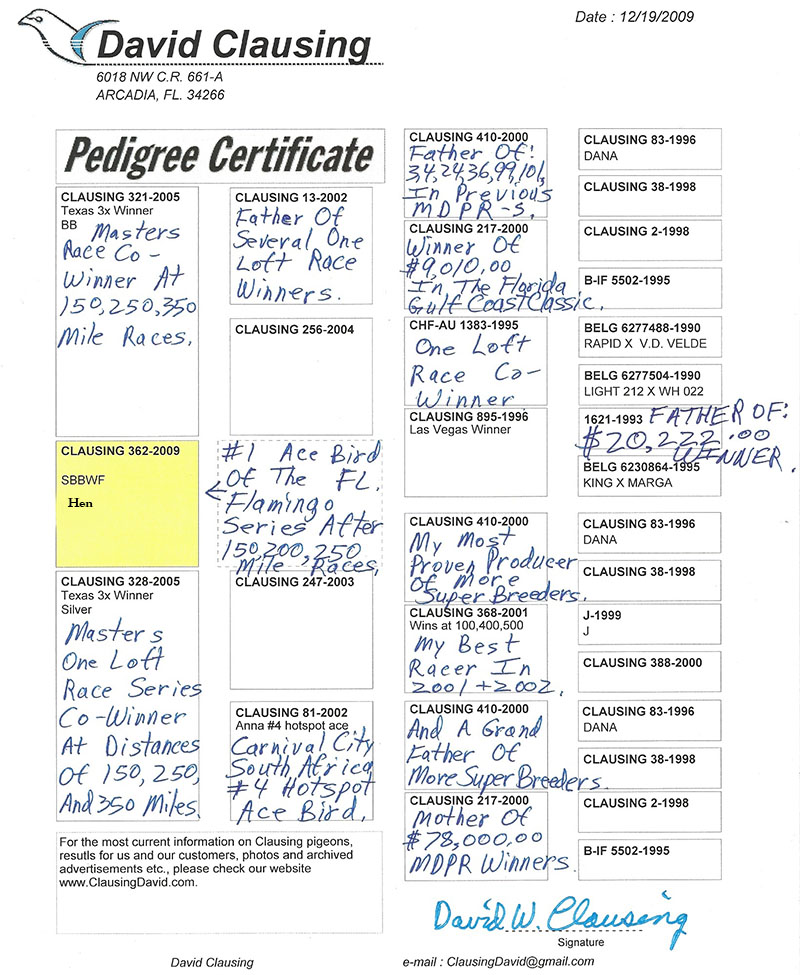 Date : 12/19/2009
David Clausing
6018 NW C.R. 661-A
ARCADIA, FL. 34266
Pedigree Certificate
CLAUSING 321-2005
Texas 3x Winner
BB Masters
Race Co-
Winner At
150,250,350
Mile Races.
CLAUSING 362-2009
SBBWF
Hen
CLAUSING 328-2005
Texas 3x Winner
Silver
Masters
One Loft
Race Series
Co-Winner
At Distances
Of 150, 250,
And 350 Miles.
CLAUSING 13-2002
Father Of
Several One
Loft Race
Winners.
CLAUSING 256-2004
#1 Ace Bird
Of The FL.
Flamingo
Series After
150,200,250
Mile Races,
CLAUSING 247-2003
CLAUSING 81-2002
Anna #4 hotspot ace
Carnival City
South Africa
#4 Hotspot
Ace Bird.
CLAUSING 410-2000
Father Of:
3,4,24,36,99,101,
In Previous
MDPR-s.
CLAUSING 217-2000
Winner Of
$9,010.00
In The Florida
Gulf Coast Classic.
CHF-AU 1383-1995
One Loft
Race Co-
Winner
CLAUSING 895-1996
Las Vegas Winner
CLAUSING 410-2000
My Most
Proven Producer
Of More
Super Breeders.
CLAUSING 368-2001
Wins at 100,400,500
My Best
Racer In
2001+2002.
CLAUSING 410-2000
And A Grand
Father Of
More Super Breeders.
CLAUSING 217-2000
Mother Of
$78,000.00
MDPR Winners.
CLAUSING 83-1996
DANA
CLAUSING 38-1998
CLAUSING 2-1998
B-IF 5502-1995
BELG 6277488-1990
RAPID X V.D. VELDE
BELG 6277504-1990
LIGHT 212 X WH 022
1621-1993 FATHER OF:
$20,222.00
WINNER.
BELG 6230864-1995
KING X MARGA
CLAUSING 83-1996
DANA
CLAUSING 38-1998
J-1999
J
CLAUSING 388-2000
CLAUSING 83-1996
DANA
CLAUSING 38-1998
CLAUSING 2-1998
B-IF 5502-1995
For the most current information on Clausing pigeons,
resutls for us and our customers, photos and archived
advertisements etc., please check our website
www.ClausingDavid.com.
David W. Clausing
Signature
David Clausing
e-mail : ClausingDavid@gmail.com